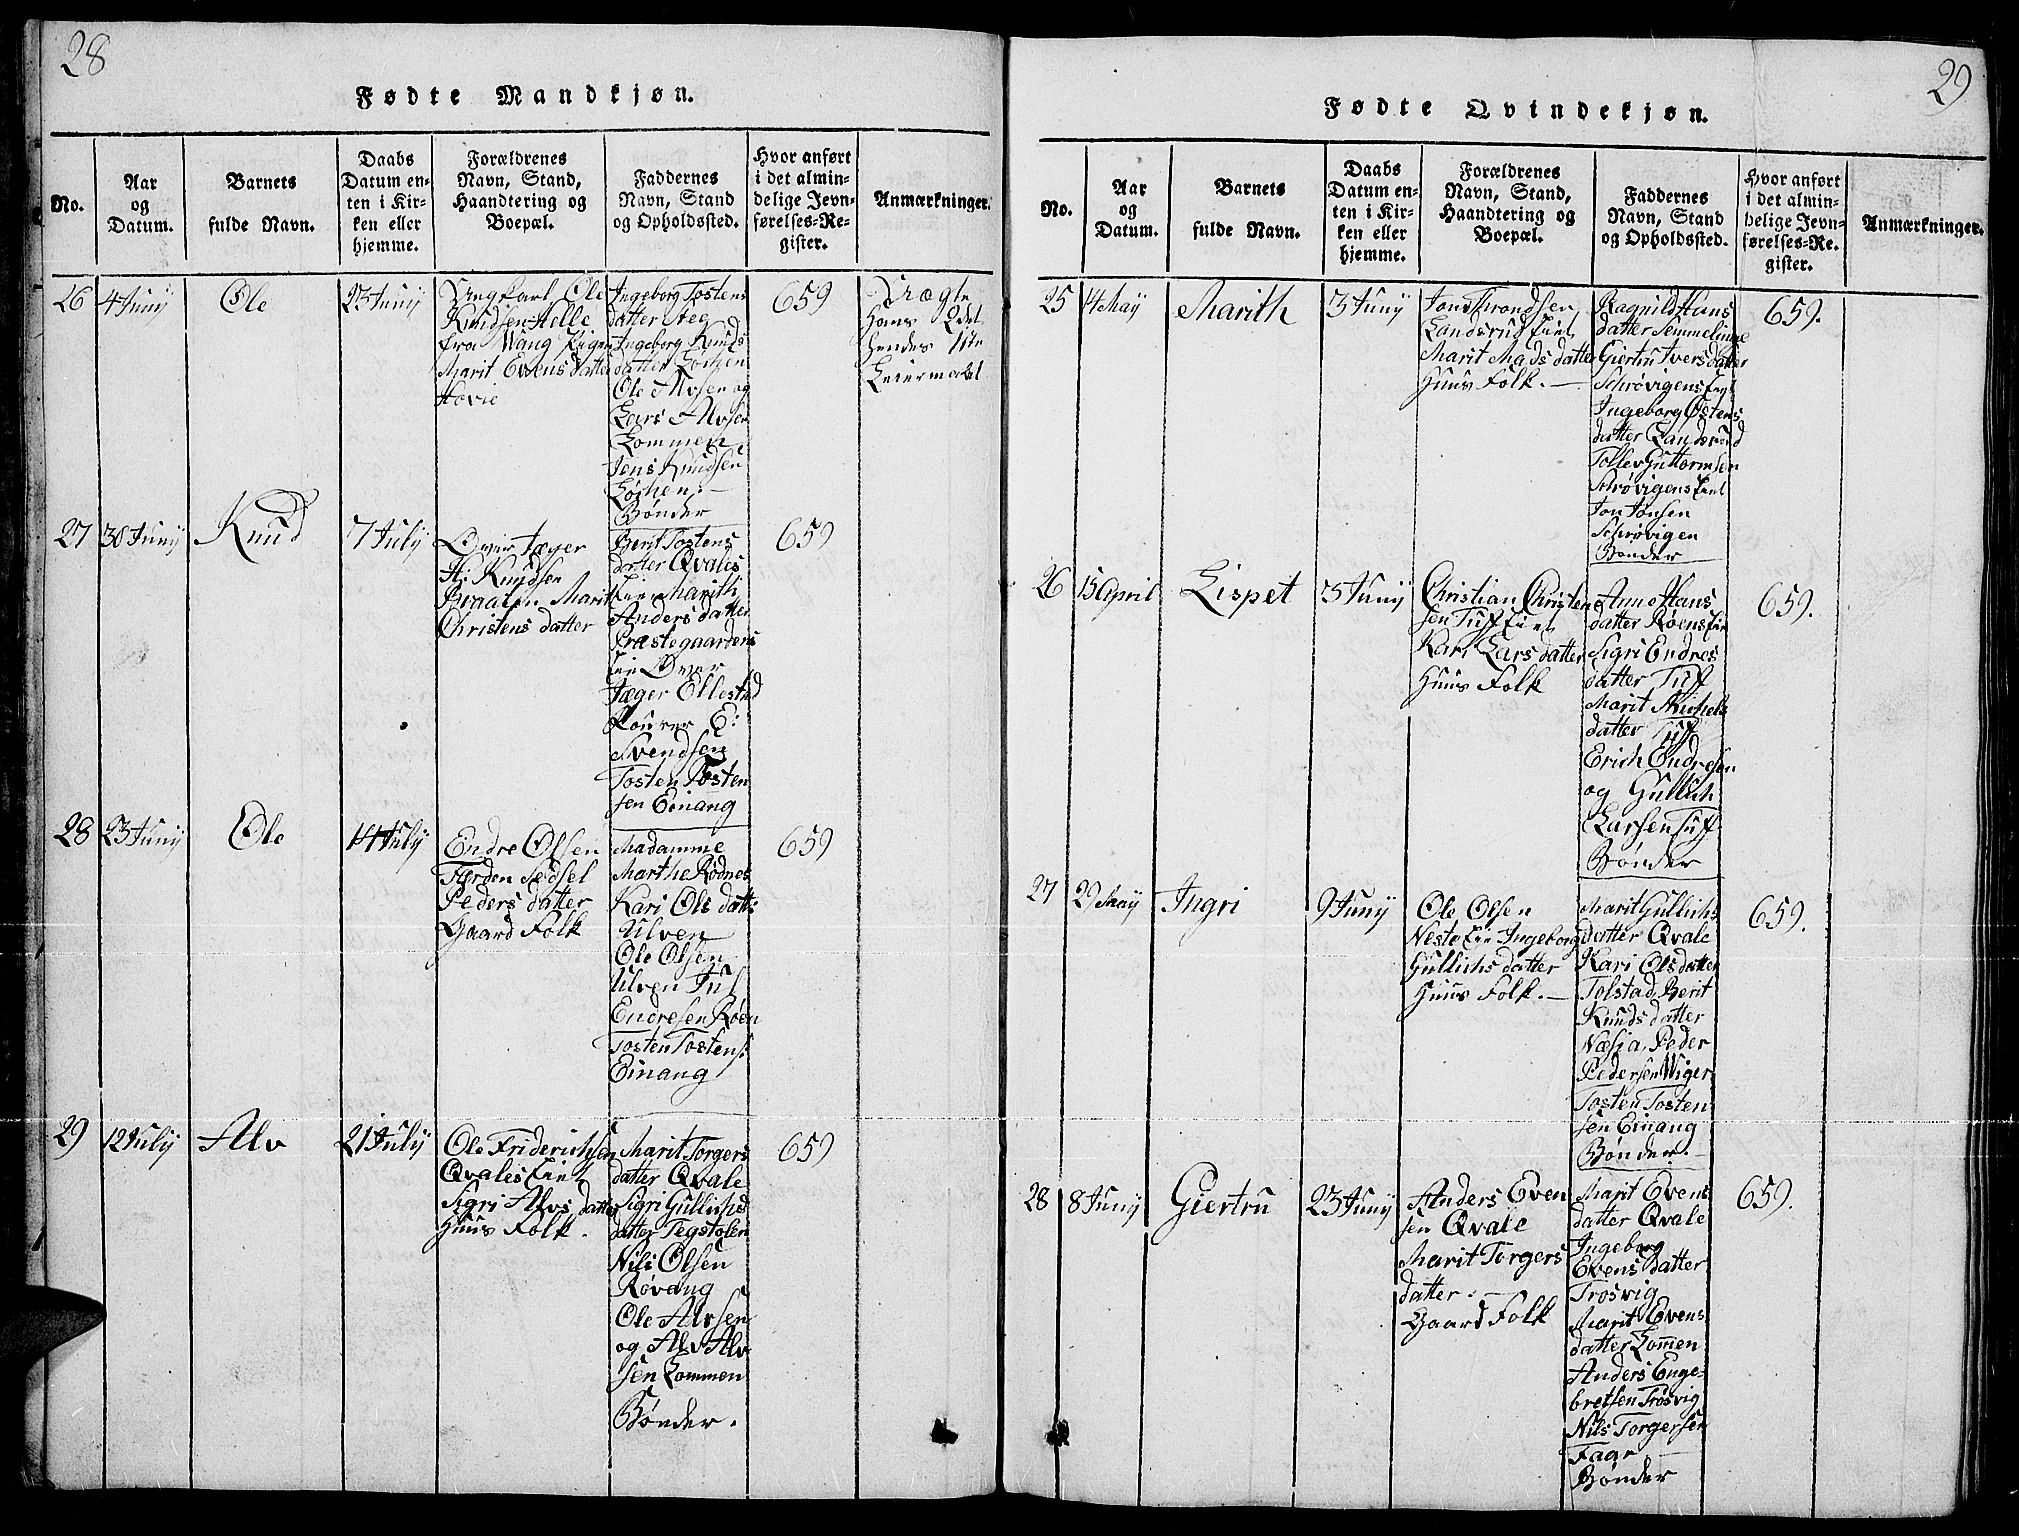 28
Fødte Mandkjøn.
No.
Aar
og
Datum.
Barnets
fulde Navn.
Daabs
Datum en-
ten i Kir-
ken eller
hjemme.
Forældrenes
Navn, Stand,
Haandtering og
Boepæl.
Faddernes
Navn, Stand
og Opholdssted.
Hvor anført
i det almin-
delige Jevn-
førelses-Re-
gister.
Anmærkninger.
26
4 Juny
Ole
23 Juny
Ungkarl Ole
Knudsen Helle
fra Wang Pigen
Marit Evens datter
Hovie
Ingeborg Tostens
datter
Ingeborg Knuds
datter Løchen
Ole Alvsen og
Lars Alvsen
Lommen
Jens Knudsen
Løchen.
Bønder
659
Uægte
Hans 2det
hendes 1ste
Leiermaal
27
30 Juny
Knud
7 July
Over Jæger
H: Knudsen
Braaten Marit
Christens datter
Berit Tostens
datter Qvales
Eie Marith
Anders datter
Præstegaardens
Eie Over
Jæger Ellestad
E:
Svendsen
Tosten Tosten
sen Einang
659
28
23 Juny
Ole
14 July
Endre Olsen
Færden Sidsel
Peders datter
Gaard Folk
Madamme
Marthe Rødnes
Kari Ols datter
Ulven
Ole Olsen
Ulven
Endresen Røen
Tosten Tostens:
Einang
659
29
12 July
Alv
21 July
Ole Friderichsen
Qvales Eiet
Sigri Alvs datter
Huus Folk.
Marit Torgers
datter Qvale
Sigri Gullichs
datter Tegstolen
Nils Olsen
Røvang
Ole Alvsen
og Alv Alv
sen Lommen
Bønder.
659
29
Fødte Qvindekjøn.
No.
Aar
og
Datum.
Barnets
fulde Navn.
Daabs
Datum en-
ten i Kir-
ken eller
hjemme.
Forældrenes
Navn, Stand,
Haandtering og
Boepæl.
Faddernes
Navn, Stand
og Opholdssted.
Hvor anført
i det almin-
delige Jevn-
førelses-Re-
gister.
Anmærkninger.
25
4 May
Marith
3 Juny
Jon Trondsen
Landsrud Eiet
Marit Mads datter
Huus Folk.
Ragnild Hans
datter Semmelinge
Giertru Ivers datter
Schrøvigens Eiet
Ingeborg Østens
datter Landsrud
Tollev Guttormsen
Schrøvigens Eiet
Jon Jonsen
Schrøvigen
Bønder
659.
26
15 April
Lispet
3 Juny
Christian Christen
sen Tuf Eiet
Kari Lars datter
Huus Folk
Anne Hans
datter Røens Eie
Sigri Endres
datter Tuf
Marit Michels
datter Tuf
Erich Endresen
og Gullich
Larsen Tuf
Bønder
659.
27
29 May
Ingri
9 Juny
Ole Olsen
Neste Eie Ingeborg
Gullichs datter
Huus Folk.
Marit Gullichs
datter Qvale
Kari Ols datter
Tolstad, Berit
Knuds datter
Næsja, Peder
Pedersen Wiger
Tosten Tosten-
sen Einang
Bønder.
659.
28
8 Juny
Giertru
23 Juny
Anders Even
sen Qvale
Marit Torgers
datter.
Gaard Folk
Marit Evens
datter Qvale
Ingeborg
Evens datter
Trosvig
Marit Evens
datter Lomen
Anders Enge-
bretsen Trosvig
Nils Torgersen
Faar
Bønder
659.